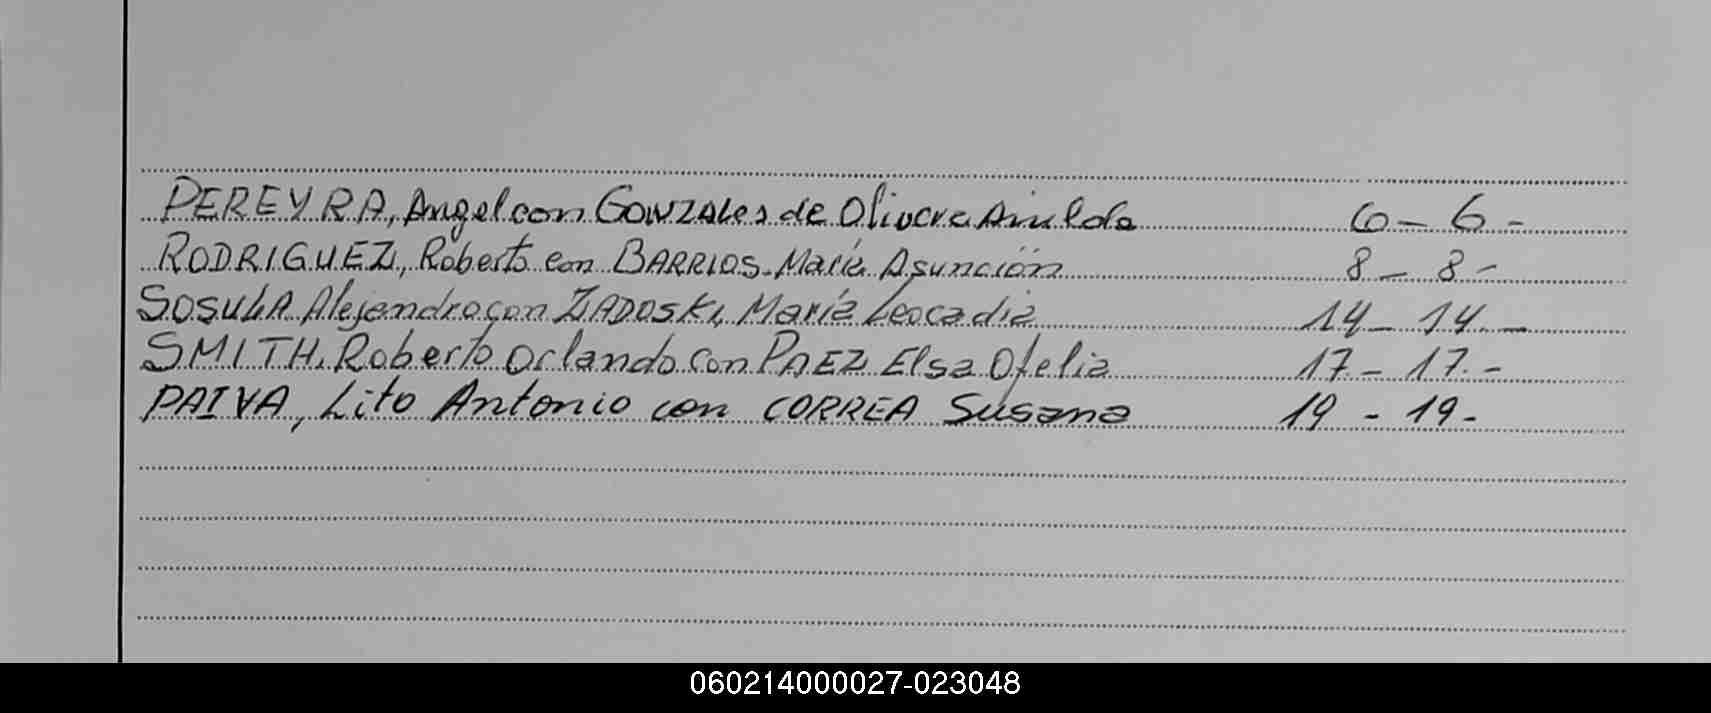 PEREYRA, Angel con GONZALES de Olivera 6 - 6 -
RODRIGUEZ, Roberto con BARRIOS. María Asunción 8 - 8 -
SOSULA Alejandro con ZADOSKI, María Leocadia 14 - 14. -
SMITH, Roberto Orlando con PAEZ Elsa Ofelia 17. - 17. -
PAIVA, Lito Antonio con CORREA Susana 19 - 19 -
060214000027-023048